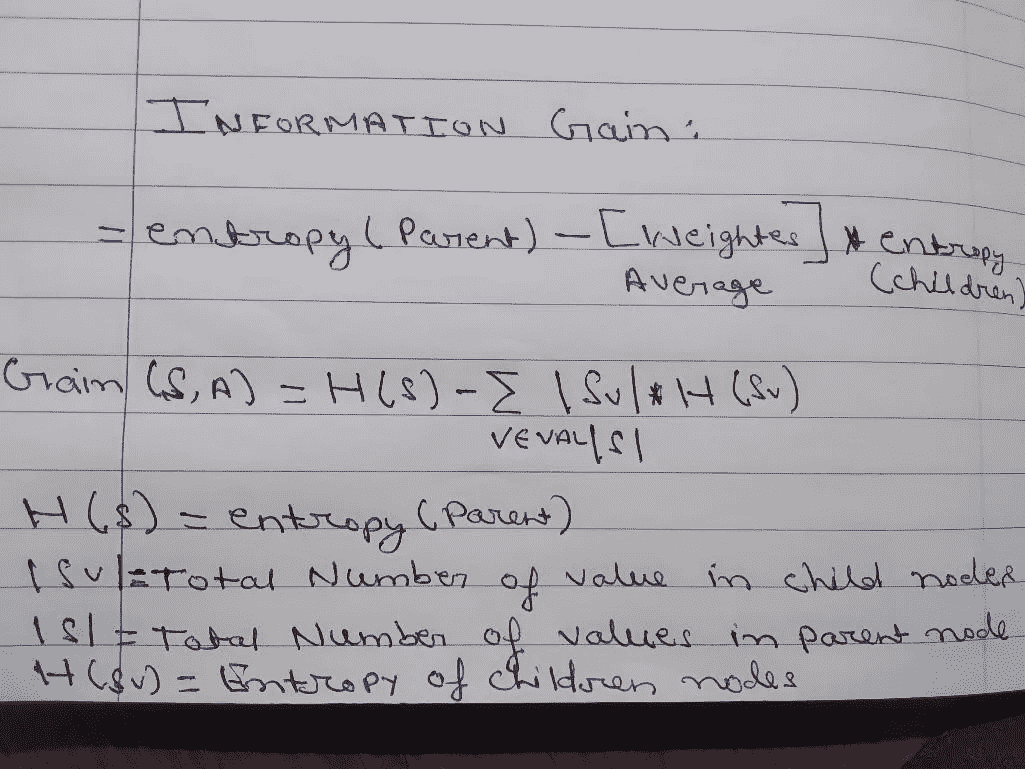 INFORMATION Gain:
= entropy (Parent) - [Weightes] * entropy
Average (children)
Gain (S, A) = H(S) - Σ |Sv| * H (Sv)
VEVAL |S|
H(S) = entropy (Parent)
|Sv| = Total Number of value in child nodes
|S| = Total Number of values in parent node
H(Sv) = Entropy of children nodes